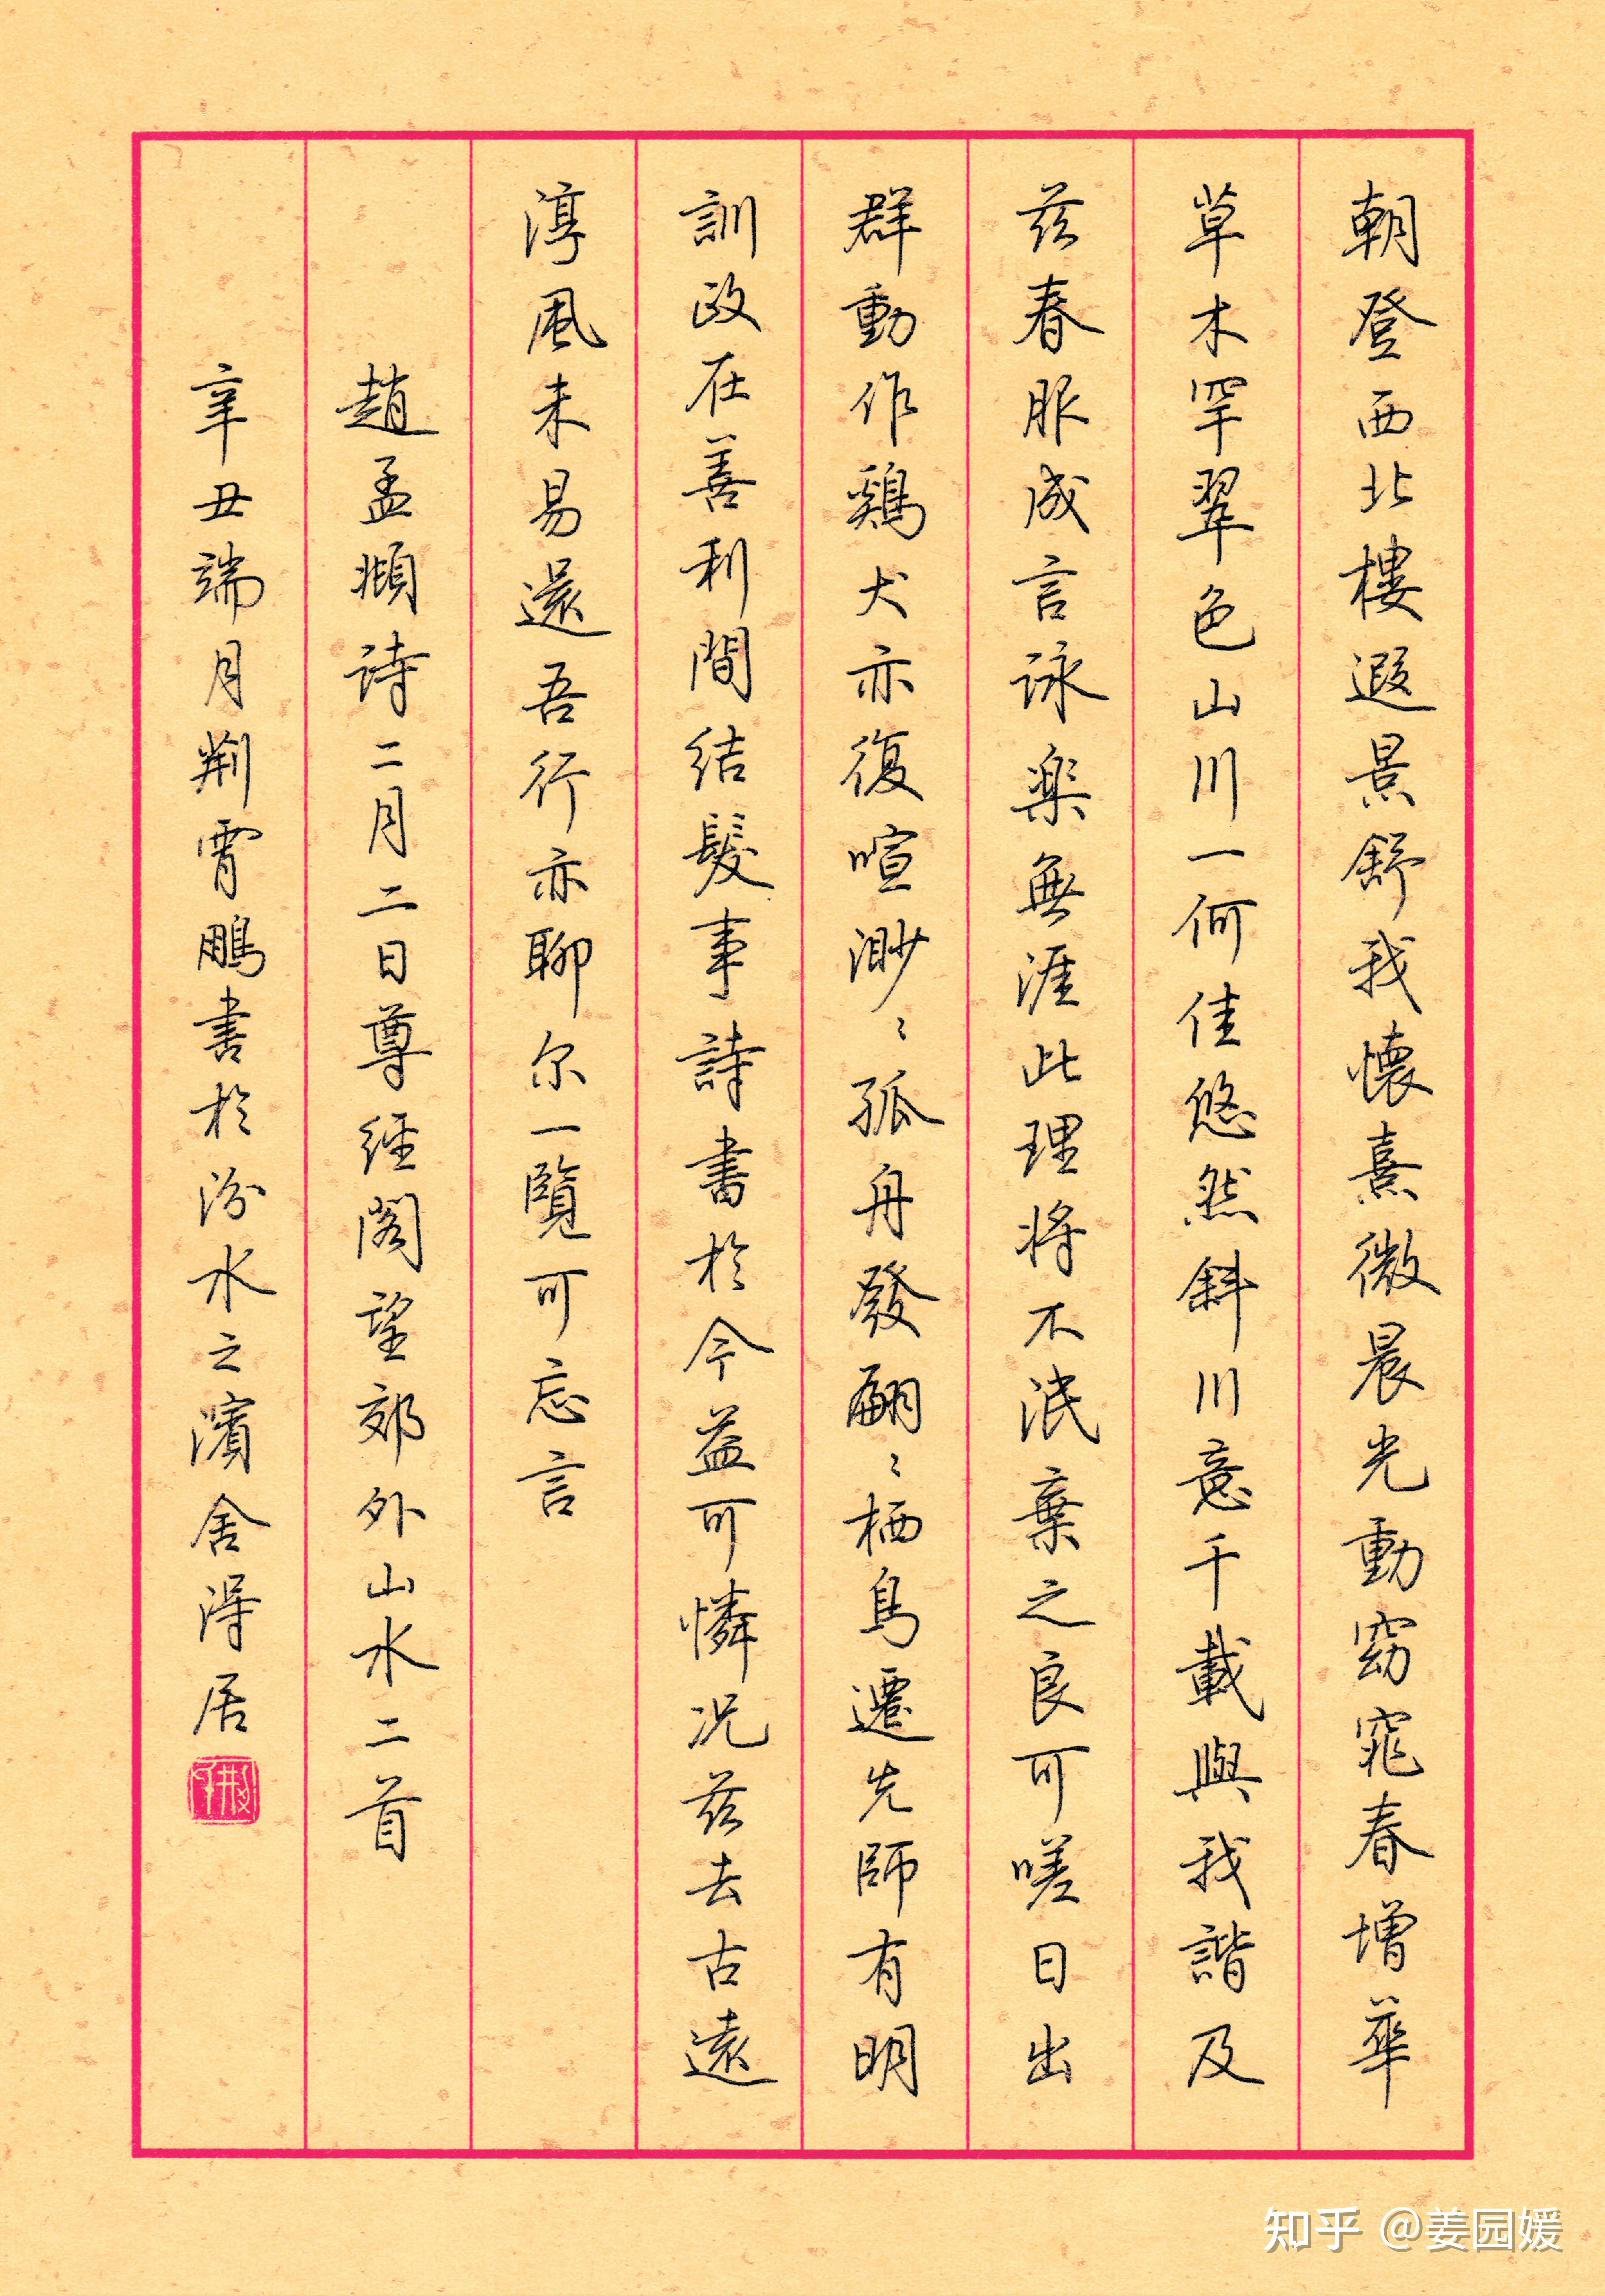 朝登西北樓遐景舒我懷熹微晨光動窈窕春增華
草木罕翠色山川一何佳悠然斜川意千載與我諧及
茲春服成言詠楽無涯此理将不泯棄之良可嗟日出
群動作鷄犬亦復喧渺〻孤舟發翩〻栖鳥遷先師有明
訓政在善利間結髮事詩書於今益可憐况茲去古遠
淳風未易還吾行亦聊尔一覽可忘言
趙孟頫诗二月二日尊經閣望郊外山水二首
辛丑端月荆霄鵬書於汾水之濱舍得居
知乎 @姜园媛